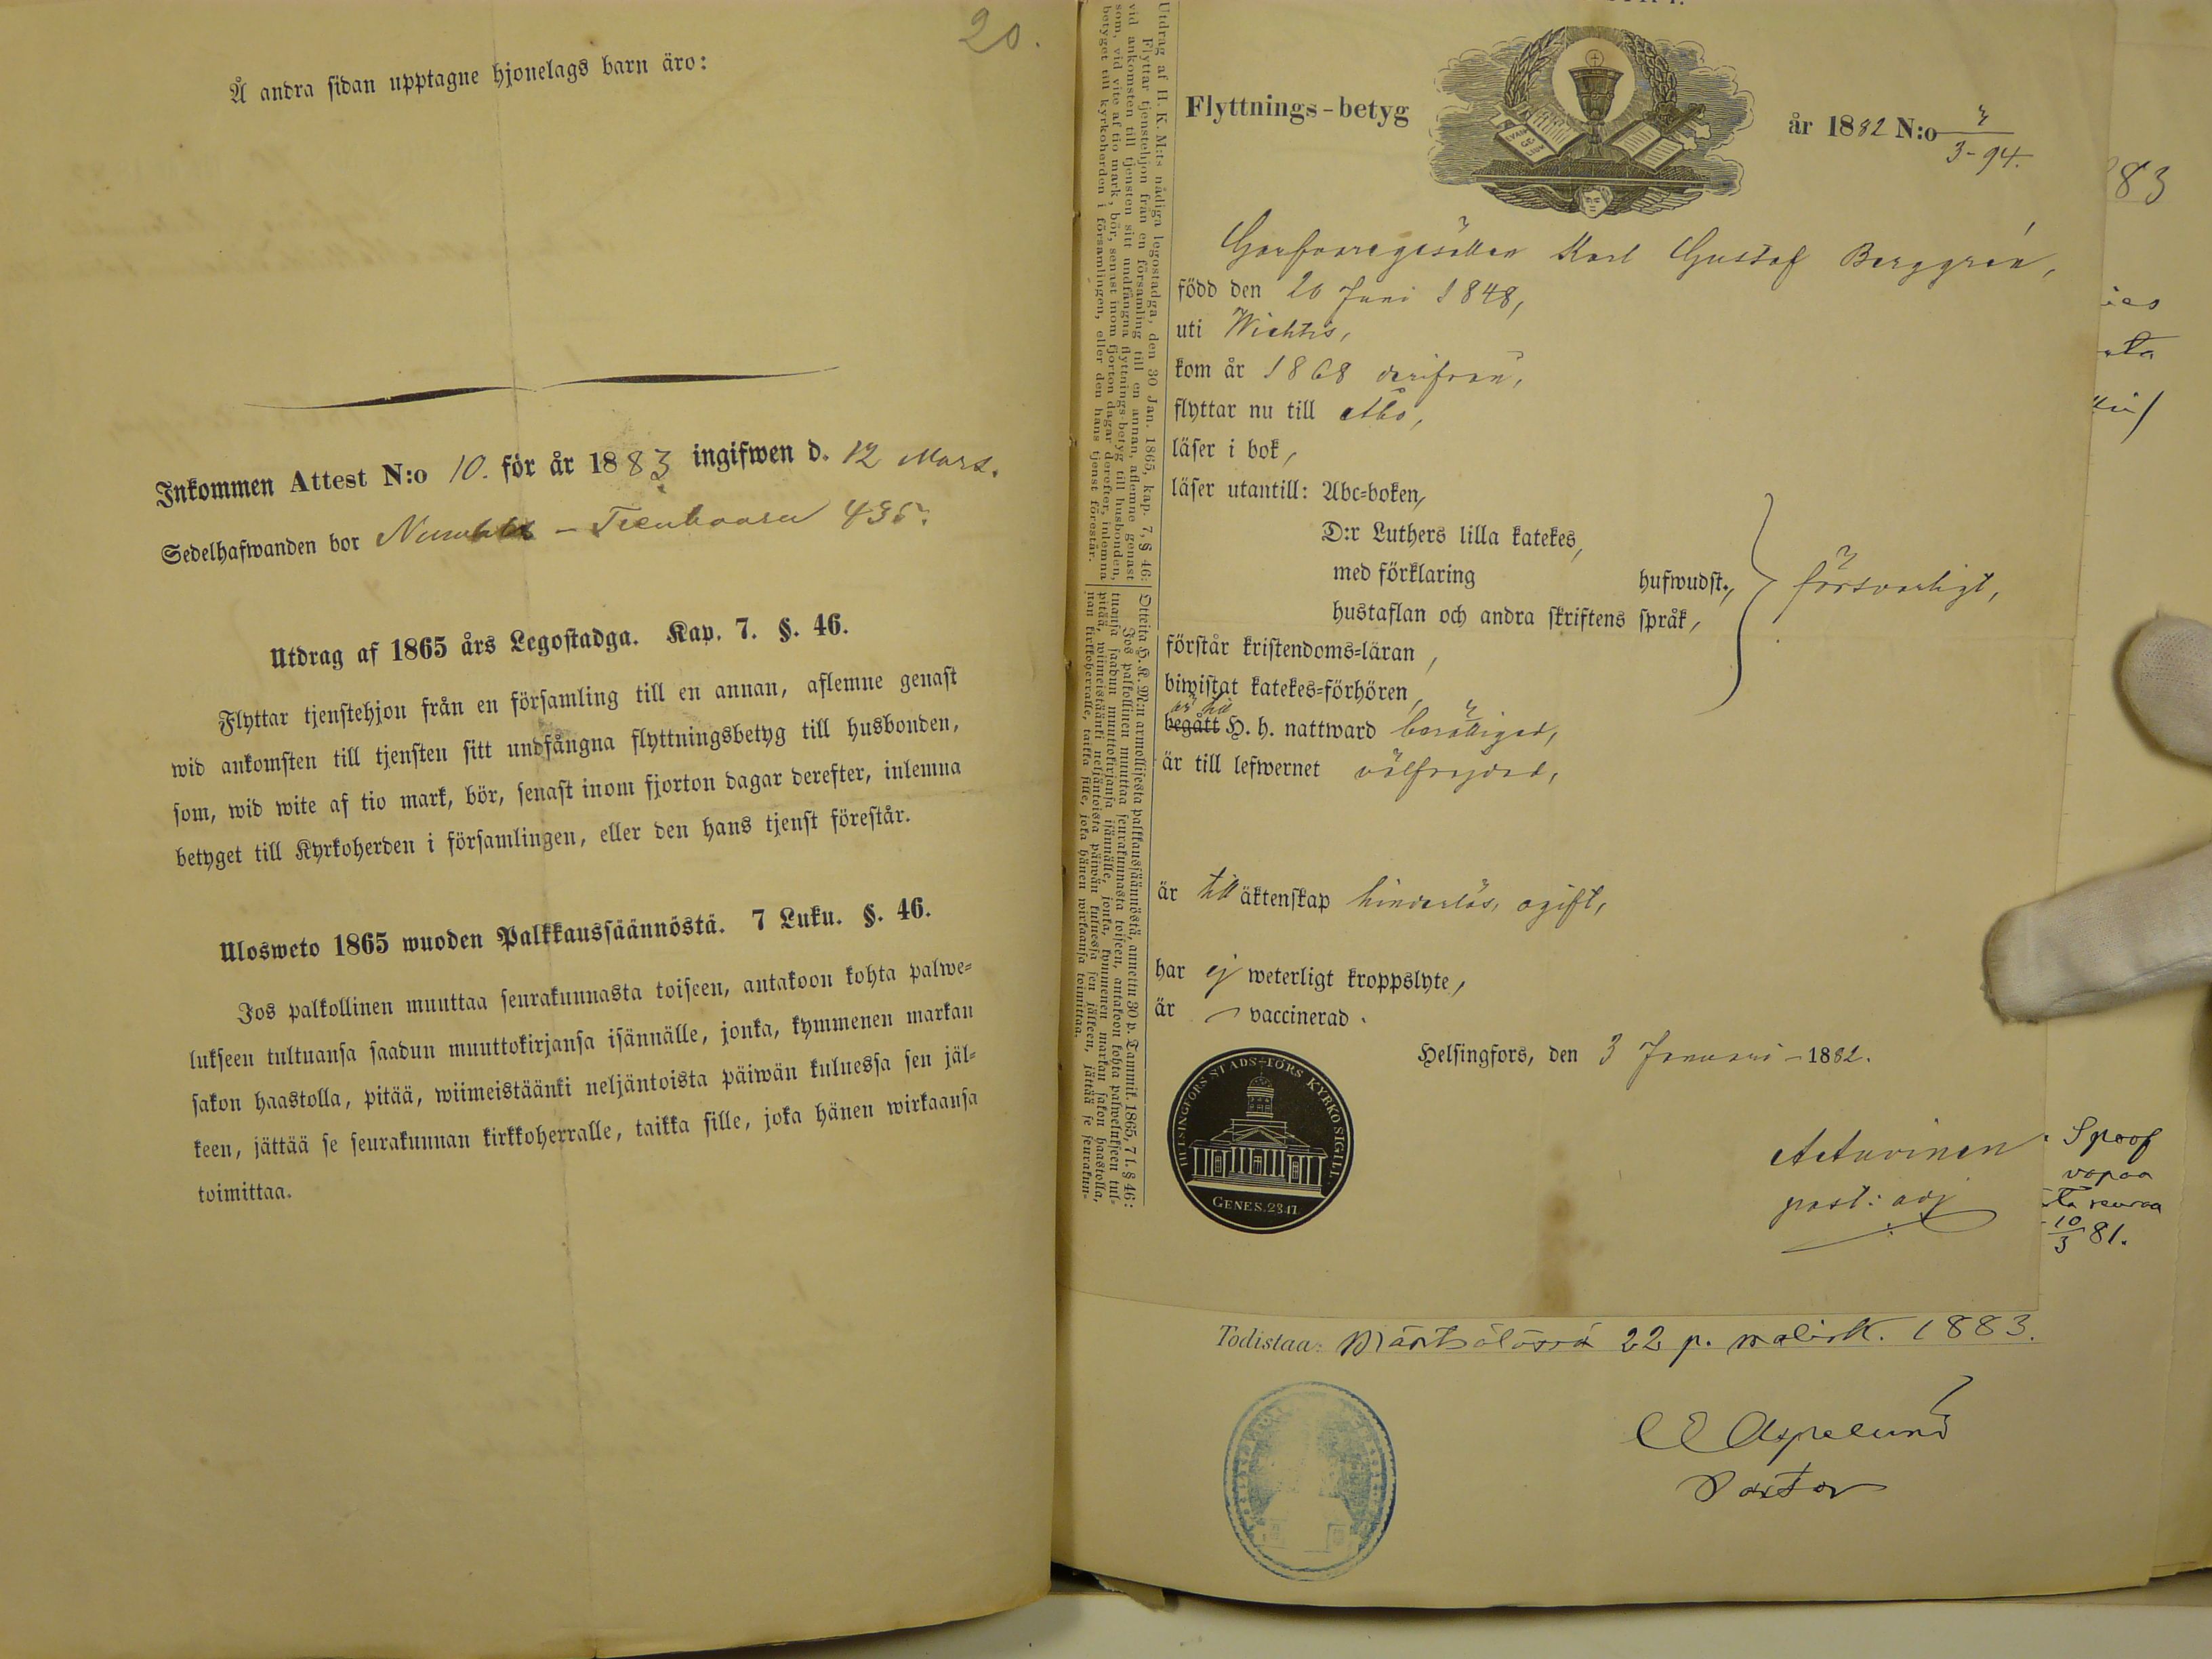 20.
Å andra sidan upptagne hjonelags barn äro:
Inkommen Attest N:o 10. för år 1883 ingifwen d. 12 Mars.
Sedelhafwanden bor 435.
Utdrag af 1865 års Legostadga. Kap. 7. §. 46.
Flyttar tjenstehjon från en församling till en annan, aflemne genast
wid ankomsten till tjensten sitt undfångna flyttningsbetyg till husbonden,
som, wid wite af tio mark, bör, senast inom fjorton dagar derefter, inlemna
betyget till Kyrkoherden i församlingen, eller den hans tjenst förestår.
Ulosweto 1865 wuoden Palkkaussäännöstä. 7 Luku. §. 46.
Jos palkollinen muuttaa seurakunnasta toiseen, antakoon kohta palwe-
lukseen tultuansa saadun muuttokirjansa isännälle, jonka, kymmenen markan
sakon haastolla, pitää, wiimeistäänki neljäntoista päiwän kuluessa sen jäl-
keen, jättää se seurakunnan kirkkoherralle, taikka sille, joka hänen wirkaansa
toimittaa.
Utdrag af H. K. M:ts nådiga legostadga, den 30 Jan. 1865, kap. 7, § 46:
Flyttar tjenstehjon från en församling till en annan, aflemne genast
vid ankomsten till tjensten sitt undfångna flyttnings-betyg till husbonden,
som, vid vite af tio mark, bör, senast inom fjorton dagar derefter, inlemna
betyget till kyrkoherden i församlingen, eller den hans tjenst förestår.
Otteita H. K. M:n armollisesta palkkaussäännöstä, annettu 30 p. Tammik. 1865, 7 l. § 46:
Jos palkollinen muuttaa seurakunnasta toiseen, antakoon kohta palwelukseen tul-
tuansa saadun muuttokirjansa isännälle, jonka, kymmenen markan sakon haastolla,
pitää, wiimeistäänki neljäntoista päiwän kuluessa sen jälkeen, jättää se seurakun-
nan kirkkoherralle, taikka sille, joka hänen wirkaansa toimittaa.
Flyttnings-betyg
år 1882 N:o
3-94.
EVAN GE LIUM
Karl Gustaf Berggrén,
född den 20 Juni 1848,
uti Wichtis,
kom år 1868 derifrån,
flyttar nu till Åbo,
läser i bok,
läser utantill: Abc-boken,
D:r Luthers lilla katekes,
med förklaring hufwudst.,
hustaflan och andra skriftens språk,
försvarligt,
förstår kristendoms-läran,
biwistat katekes-förhören,
är till
begått H. h. nattward berättigad,
är till lefwernet välfrejdad,
är till äktenskap hinderlös, ogift,
har ej weterligt kroppslyte,
är vaccinerad.
Helsingfors, den 3 Januari 1882.
HELSINGFORS STADS-FÖRS KYRKO SIGILL.
GENES. 28.17.
past: adj
83
Spoof
vapaa
seuraa
10/3 81.
Todistaa: Mäntsälässä 22 p. maalisk. 1883.
Aspelund
Pastor